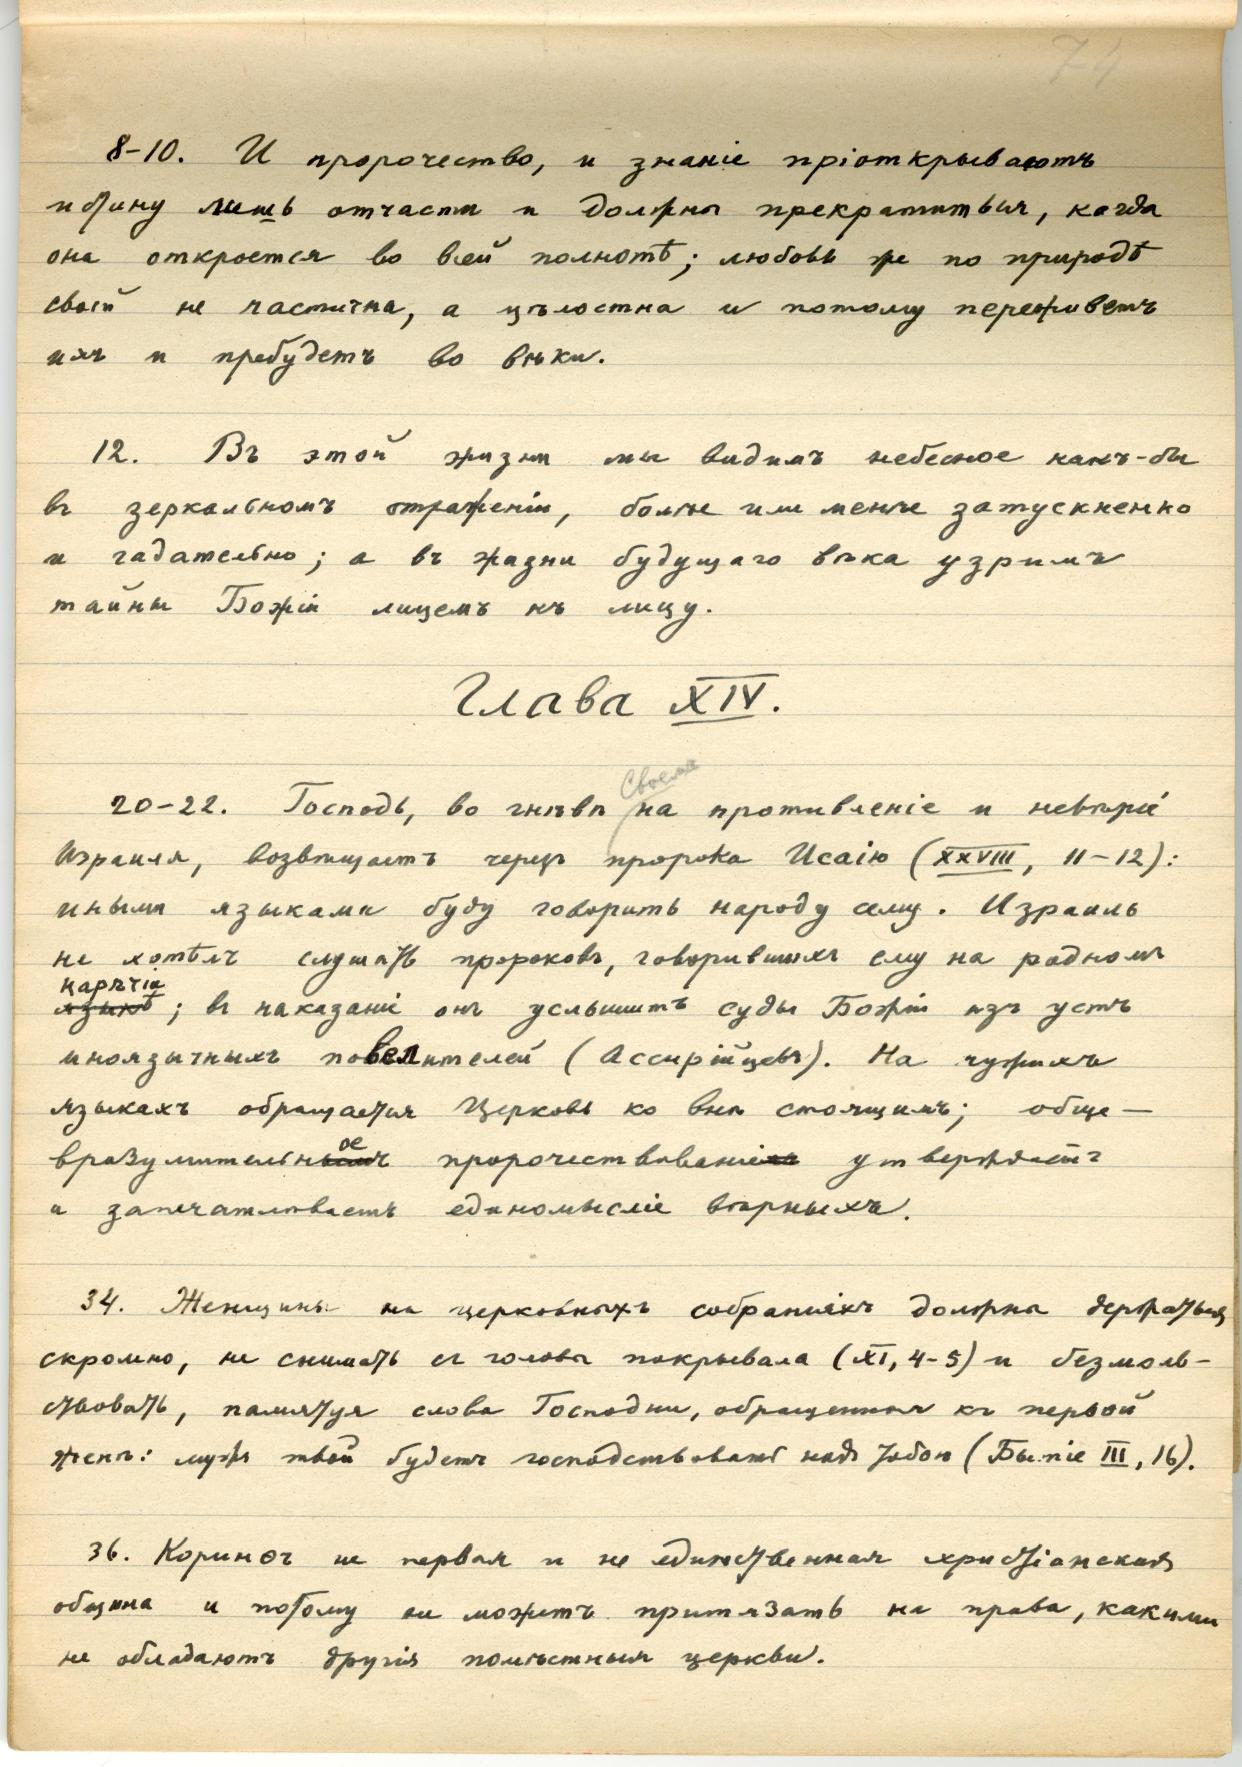 74
8-10. И пророчество, и знаніе пріоткрываютъ
истину лишь отчасти и должны прекратиться, когда
она откроется во всей полнотѣ; любовь же по природѣ
своей не частична, а цѣлостна и потому переживетъ
ихъ и пребудетъ во вѣки.
12. Въ этой жизни мы видимъ небесное какъ-бы
въ зеркальномъ отраженіи, болѣе или менѣе затускненно
и гадательно; а въ жизни будущаго вѣка узримъ
тайны Божіи лицемъ къ лицу.
Глава XIV.
Своемъ
20-22. Господь, во гнѣвѣ на противленіе и невѣріе
Израиля, возвѣщаетъ черезъ пророка Исаію (XXVIII, 11-12):
иными языками буду говорить народу сему. Израиль
не хотѣлъ слушать пророковъ, говорившихъ ему на родномъ
нарѣчіи
языкѣ; въ наказаніе онъ услышитъ суды Божіи изъ устъ
иноязычныхъ повелителей (Ассирійцевъ). На чужихъ
языкахъ обращается Церковь ко внѣ стоящимъ; обще-
ое
вразумительнымъ пророчествованіемъ утверждаетъ
и запечатлѣваетъ единомысліе вѣрныхъ.
34. Женщины на церковныхъ собраніяхъ должны держаться
скромно, не снимать съ головы покрывала (XI, 4-5) и безмолв-
ствовать, памятуя слова Господни, обращенныя къ первой
женѣ: мужъ твой будетъ господствовать надъ тобою (Бытіе III, 16).
36. Коринѳъ не первая и не единственная христіанская
община и потому не можетъ притязать на права, какими
не обладаютъ другія помѣстныя церкви.